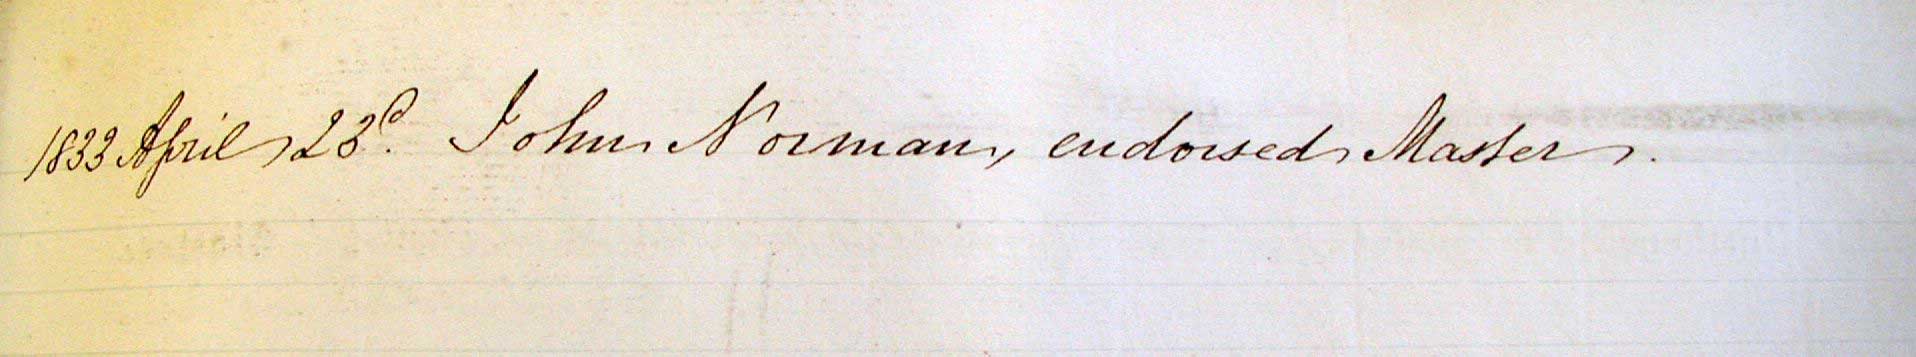 1833 April 23d. John Norman, endorsed Master.